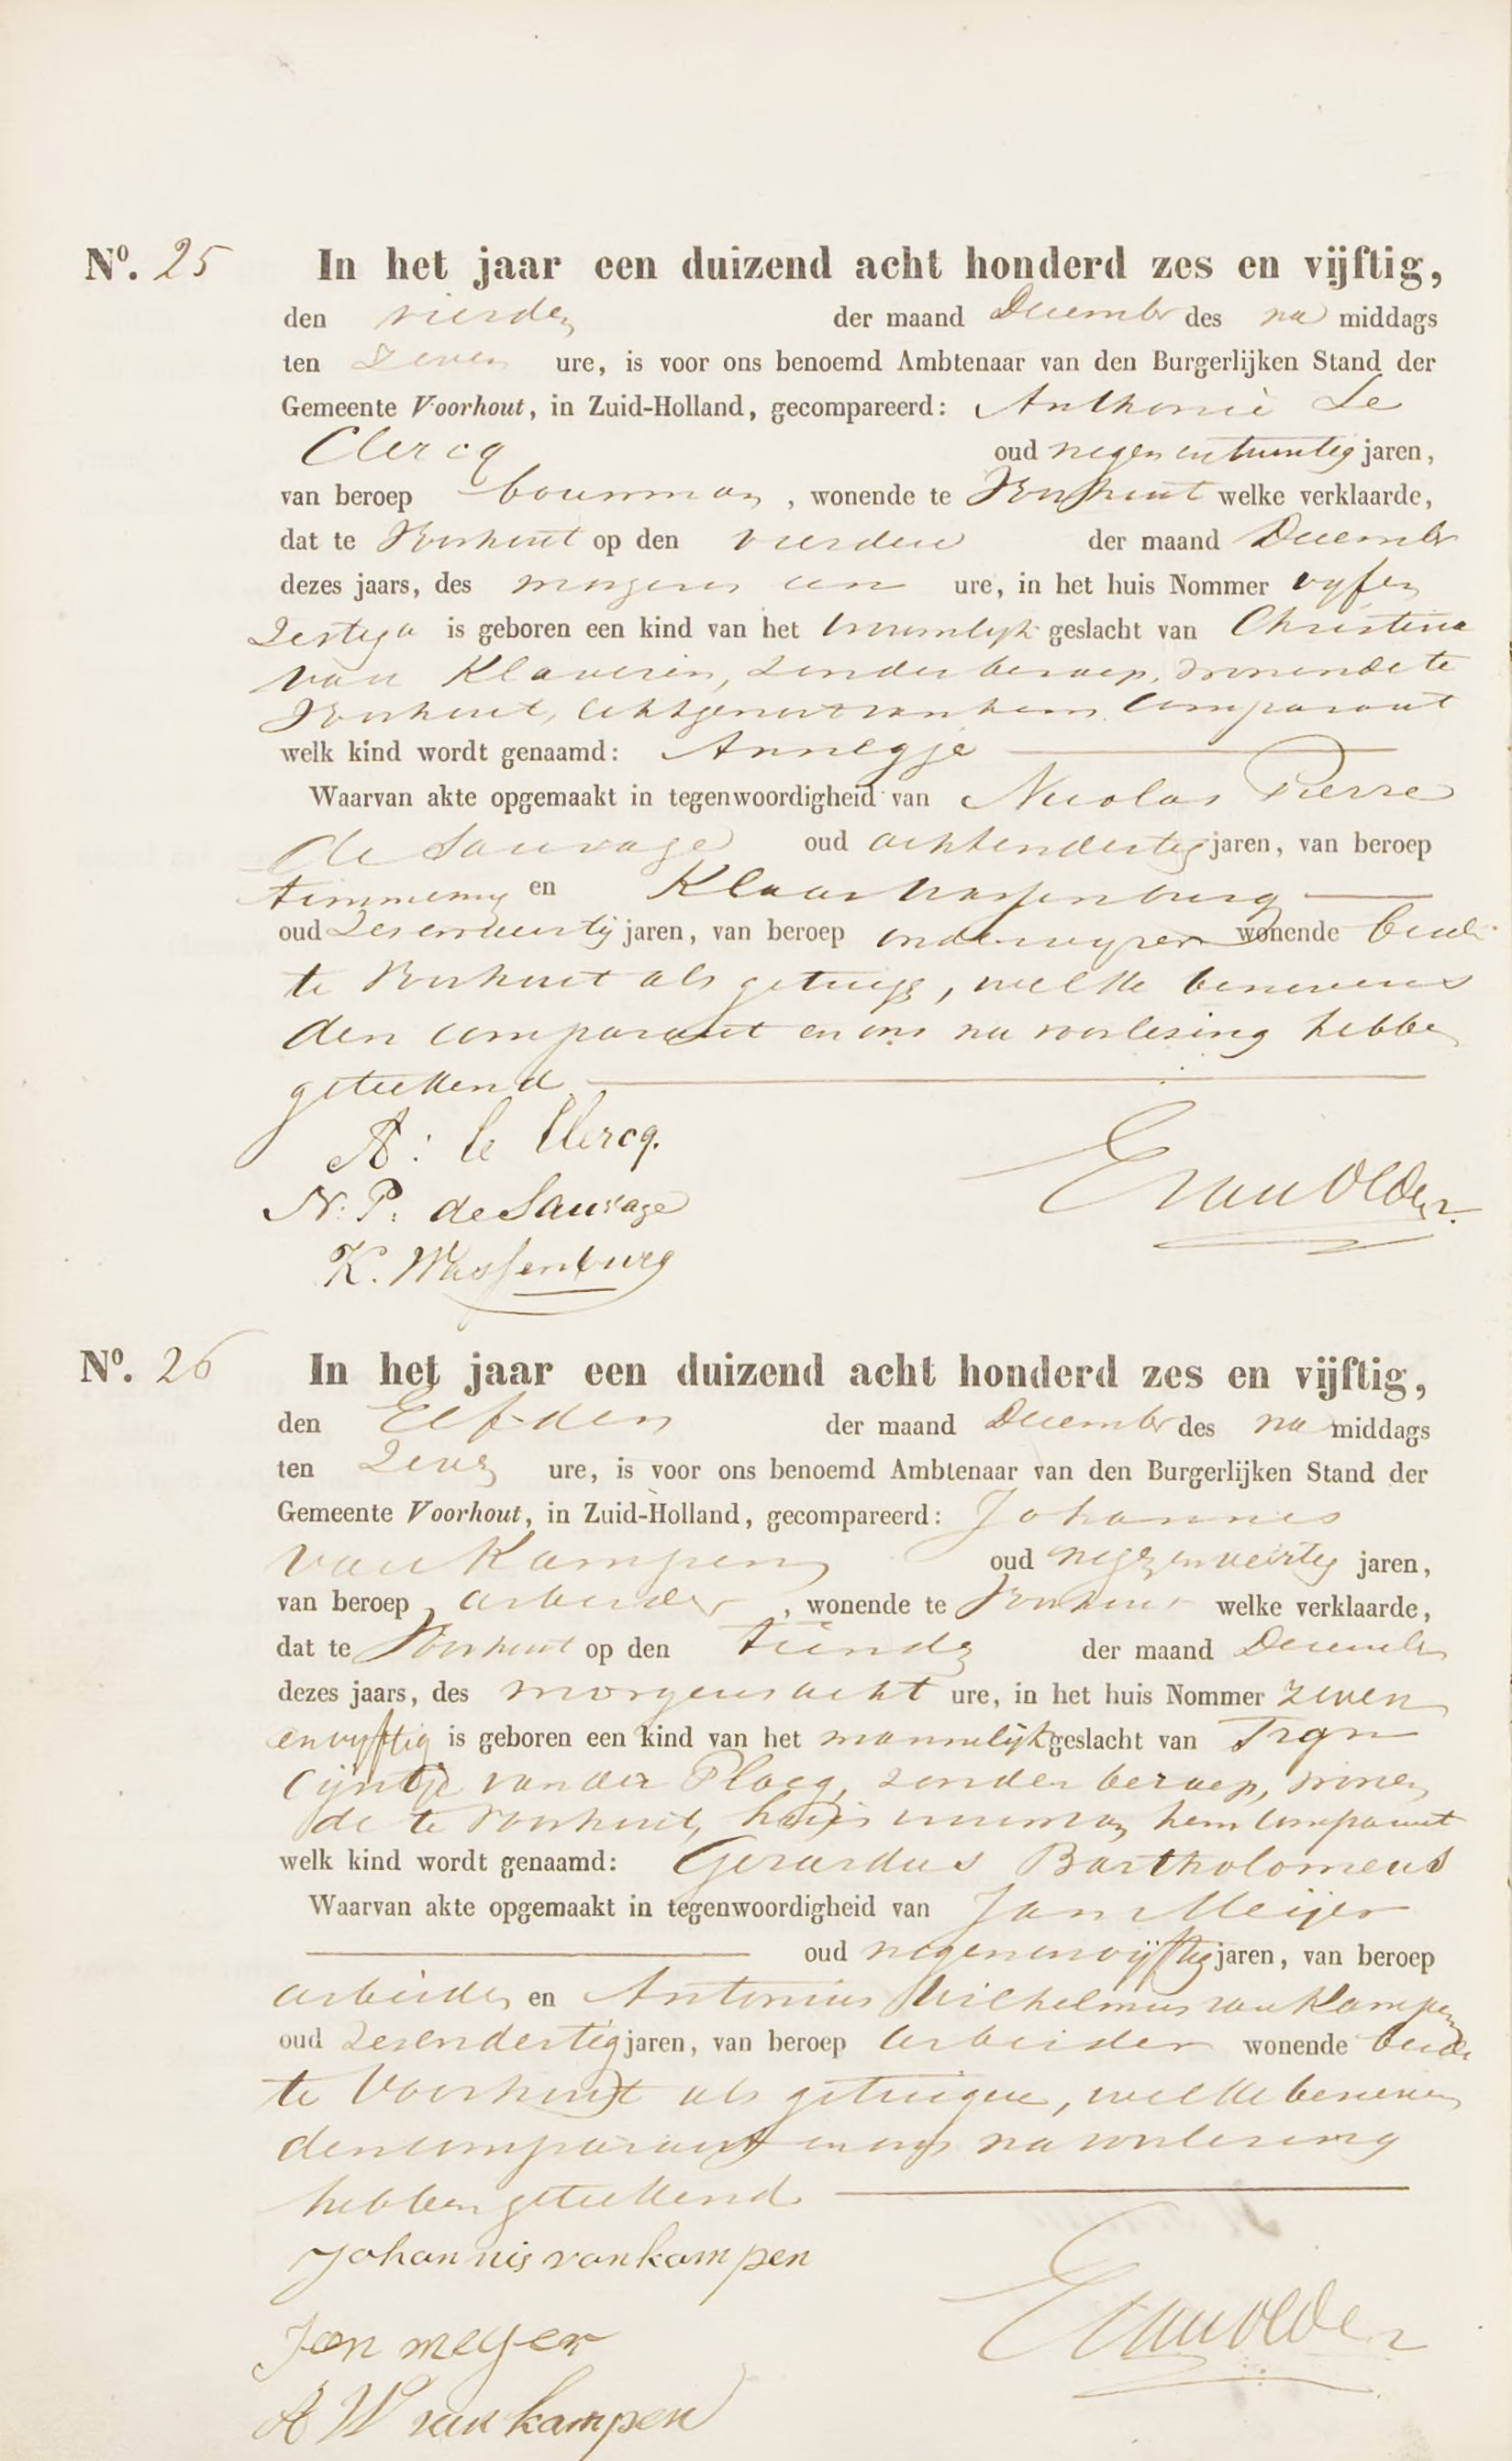 Nº. 25 In het jaar een duizend acht honderd zes en vijftig,
den vierden der maand December des na middags
ten zeven ure, is voor ons benoemd Ambtenaar van den Burgerlijken Stand der
Gemeente Voorhout, in Zuid-Holland, gecompareerd: Anthonie Le
Clercq oud negen entwintig jaren,
van beroep bouwman, wonende te Voorhout welke verklaarde,
dat te Voorhout op den vierden der maand December
dezes jaars, des morgens een ure, in het huis Nommer vyfen
Zestig a is geboren een kind van het vrouwelyk geslacht van Christina
van Klaveren, zonder beroep, wonende te
Voorhout, echtgenoot van hem Comparant
welk kind wordt genaamd: Annegje
Waarvan akte opgemaakt in tegenwoordigheid van Nicolas Pierre
de Sauvage oud achtendertig jaren, van beroep
timmerman en Klaas Wassenburg
oud Zesenveertig jaren, van beroep onderwyzer wonende beide
te Voorhout als getuige, welke benevens
den comparant en ons na voorlezing hebben
geteekend
A: le Clercq.
N. P. de Sauvage
E van Olden
K. Wassenburg
Nº. 26 In het jaar een duizend acht honderd zes en vijftig,
den Elfden der maand December des na middags
ten Zeven ure, is voor ons benoemd Ambtenaar van den Burgerlijken Stand der
Gemeente Voorhout, in Zuid-Holland, gecompareerd: Johannes
van Kampen oud negenenveertig jaren,
van beroep arbeider, wonende te Voorhout welke verklaarde,
dat te Voorhout op den tienden der maand December
dezes jaars, des morgens acht ure, in het huis Nommer zeven
envyftig is geboren een kind van het mannelijk geslacht van
Cijntje van der Ploeg, zonder beroep, wonen
de te Voorhout, huisvrouw van hem comparant
welk kind wordt genaamd: Gerardus Bartholomeus
Waarvan akte opgemaakt in tegenwoordigheid van Jan Meijer
oud negenenvijftig jaren, van beroep
arbeider en Antonius Wilhelmus van Kampen
oud zesendertig jaren, van beroep arbeider wonende beide
te Voorhout als getuigen, welke benevens
den comparant en ons na voorlezing
hebben geteekend
Johannis van kampen
E van Olden
Jan meyer
A W van kampen